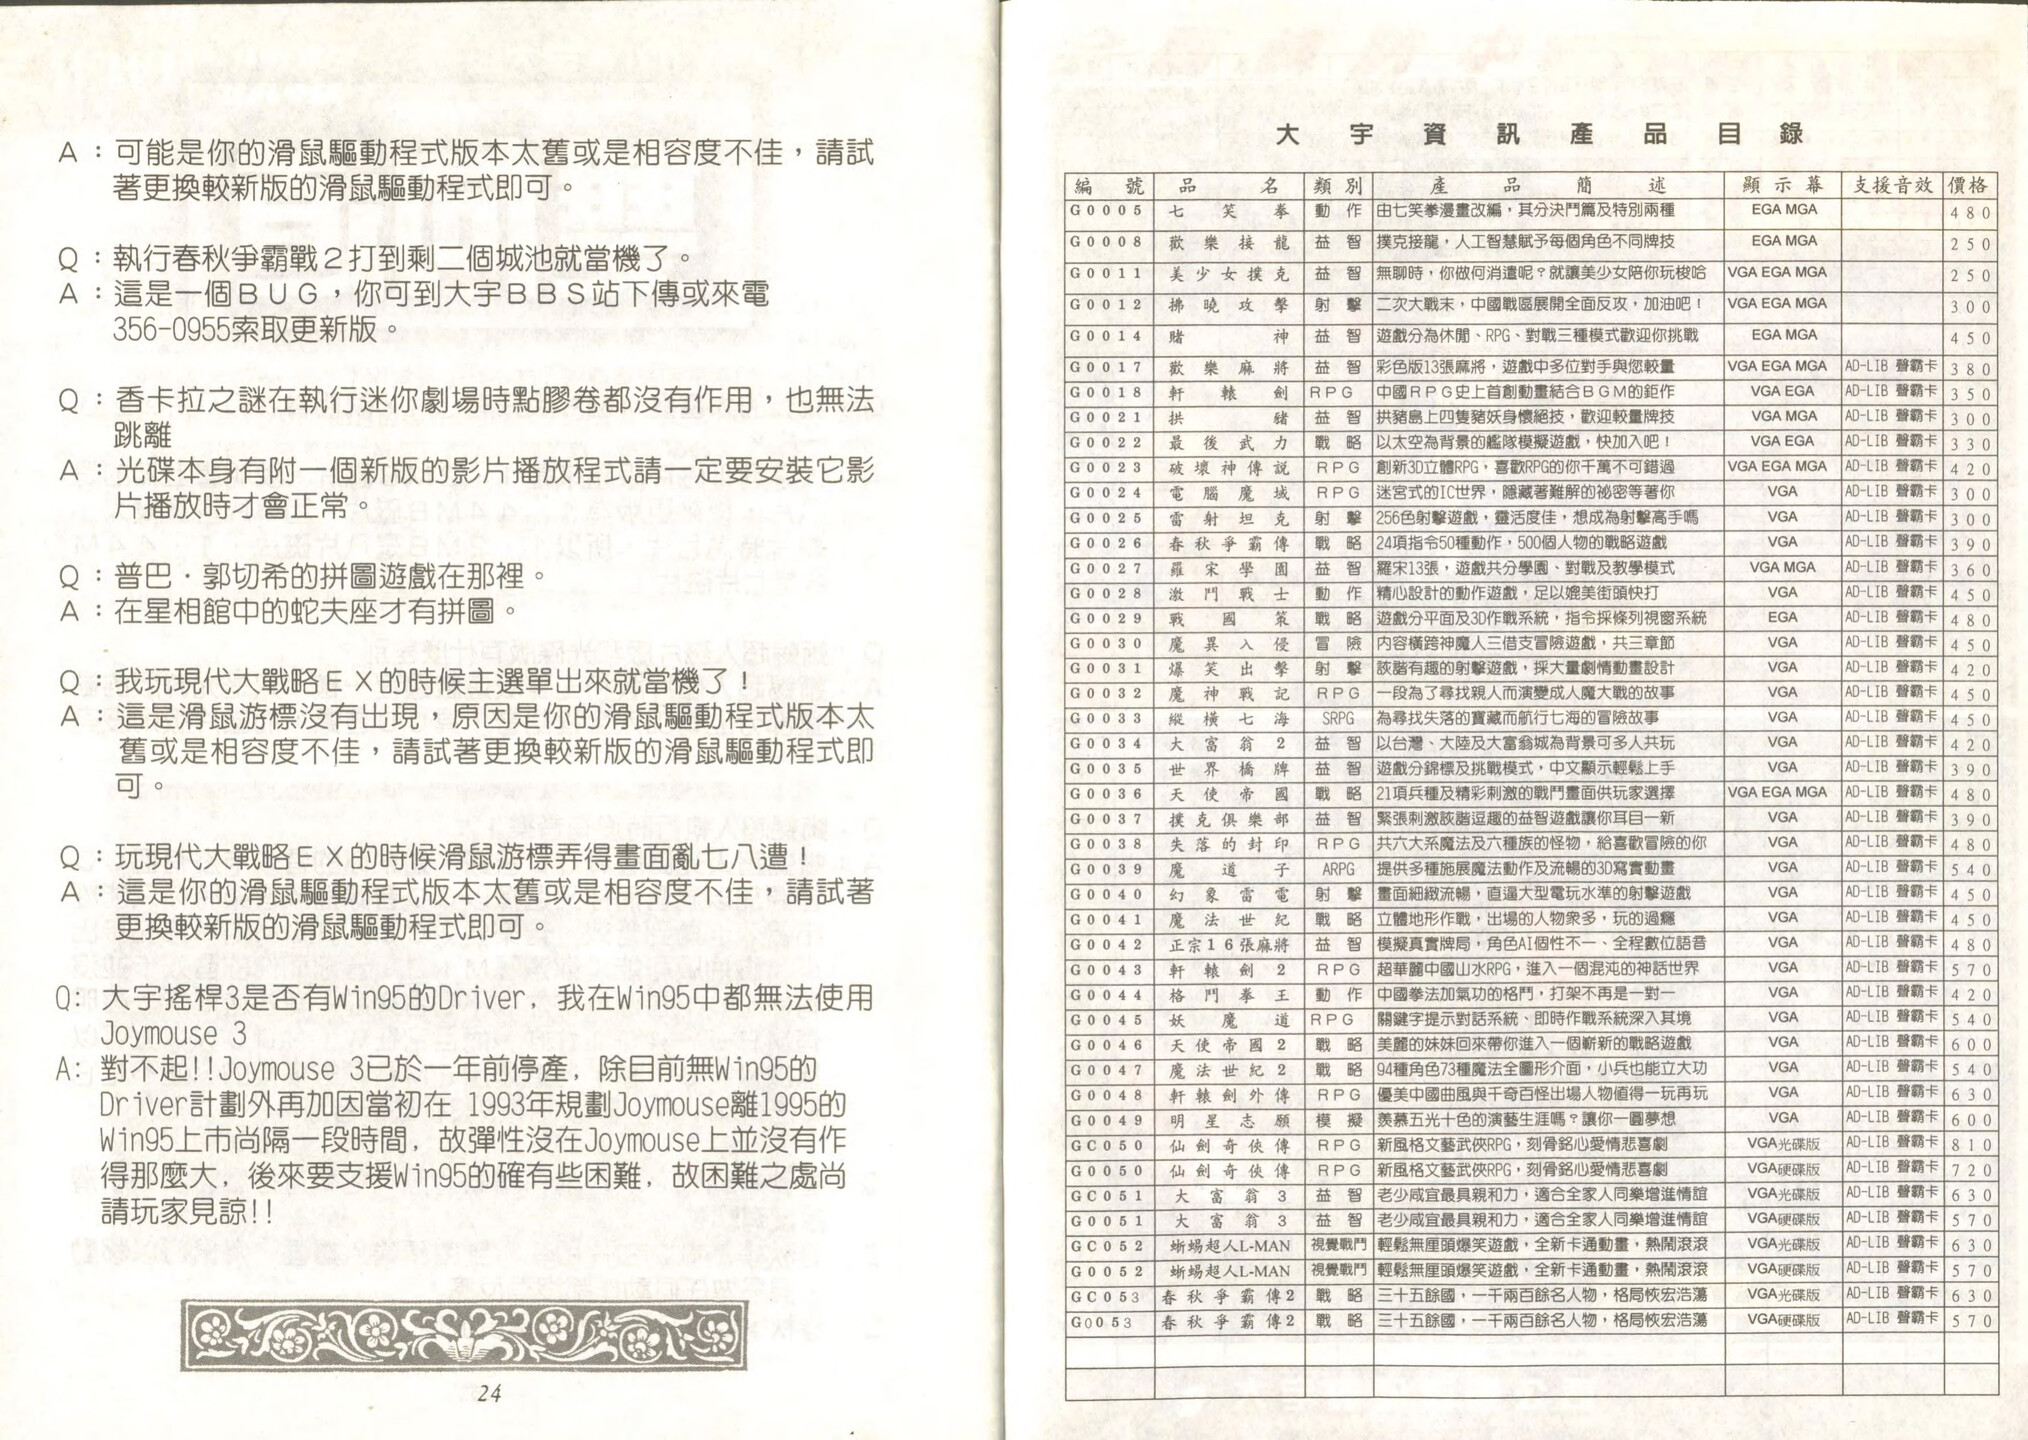 A：可能是你的滑鼠驅動程式版本太舊或是相容度不佳，請試
著更換較新版的滑鼠驅動程式即可。
Q：執行春秋爭霸戰２打到剩二個城池就當機了。
A：這是一個ＢＵＧ，你可到大宇ＢＢＳ站下傳或來電
356-0955索取更新版。
Q：香卡拉之謎在執行迷你劇場時點膠卷都沒有作用，也無法
跳離
A：光碟本身有附一個新版的影片播放程式請一定要安裝它影
片播放時才會正常。
Q：普巴．郭切希的拼圖遊戲在那裡。
A：在星相館中的蛇夫座才有拼圖。
Q：我玩現代大戰略ＥＸ的時候主選單出來就當機了！
A：這是滑鼠游標沒有出現，原因是你的滑鼠驅動程式版本太
舊或是相容度不佳，請試著更換較新版的滑鼠驅動程式即
可。
Q：玩現代大戰略ＥＸ的時候滑鼠游標弄得畫面亂七八遭！
A：這是你的滑鼠驅動程式版本太舊或是相容度不佳，請試著
更換較新版的滑鼠驅動程式即可。
Q: 大宇搖桿3是否有Win95的Driver, 我在Win95中都無法使用
Joymouse 3
A: 對不起!!Joymouse 3已於一年前停產, 除目前無Win95的
Driver計劃外再加因當初在 1993年規劃Joymouse離1995的
Win95上市尚隔一段時間, 故彈性沒在Joymouse上並沒有作
得那麼大, 後來要支援Win95的確有些困難, 故困難之處尚
請玩家見諒!!
24
大宇資訊產品目錄
編號 品名 類別 產品簡述 顯示幕 支援音效 價格
G0005 七笑拳 動作 由七笑拳漫畫改編，其分決鬥篇及特別兩種 EGA MGA 480
G0008 歡樂接龍 益智 撲克接龍，人工智慧賦予每個角色不同牌技 EGA MGA 250
G0011 美少女撲克 益智 無聊時，你做何消遣呢？就讓美少女陪你玩梭哈 VGA EGA MGA 250
G0012 拂曉攻擊 射擊 二次大戰末，中國戰區展開全面反攻，加油吧！ VGA EGA MGA 300
G0014 賭神 益智 遊戲分為休閒、RPG、對戰三種模式歡迎你挑戰 EGA MGA 450
G0017 歡樂麻將 益智 彩色版13張麻將，遊戲中多位對手與您較量 VGA EGA MGA AD-LIB 聲霸卡 380
G0018 軒轅劍 RPG 中國ＲＰＧ史上首創動畫結合ＢＧＭ的鉅作 VGA EGA AD-LIB 聲霸卡 350
G0021 拱豬 益智 拱豬島上四隻豬妖身懷絕技，歡迎較量牌技 VGA MGA AD-LIB 聲霸卡 300
G0022 最後武力 戰略 以太空為背景的艦隊模擬遊戲，快加入吧！ VGA EGA AD-LIB 聲霸卡 330
G0023 破壞神傳說 RPG 創新3D立體RPG，喜歡RPG的你千萬不可錯過 VGA EGA MGA AD-LIB 聲霸卡 420
G0024 電腦魔域 RPG 迷宮式的IC世界，隱藏著難解的祕密等著你 VGA AD-LIB 聲霸卡 300
G0025 雷射坦克 射擊 256色射擊遊戲，靈活度佳，想成為射擊高手嗎 VGA AD-LIB 聲霸卡 300
G0026 春秋爭霸傳 戰略 24項指令50種動作，500個人物的戰略遊戲 VGA AD-LIB 聲霸卡 390
G0027 羅宋學園 益智 羅宋13張，遊戲共分學園、對戰及教學模式 VGA MGA AD-LIB 聲霸卡 360
G0028 激鬥戰士 動作 精心設計的動作遊戲，足以媲美街頭快打 VGA AD-LIB 聲霸卡 450
G0029 戰國策 戰略 遊戲分平面及3D作戰系統，指令採條列視窗系統 EGA AD-LIB 聲霸卡 480
G0030 魔異入侵 冒險 內容橫跨神魔人三借支冒險遊戲，共三章節 VGA AD-LIB 聲霸卡 450
G0031 爆笑出擊 射擊 詼諧有趣的射擊遊戲，採大量劇情動畫設計 VGA AD-LIB 聲霸卡 420
G0032 魔神戰記 RPG 一段為了尋找親人而演變成人魔大戰的故事 VGA AD-LIB 聲霸卡 450
G0033 縱橫七海 SRPG 為尋找失落的寶藏而航行七海的冒險故事 VGA AD-LIB 聲霸卡 450
G0034 大富翁2 益智 以台灣、大陸及大富翁城為背景可多人共玩 VGA AD-LIB 聲霸卡 420
G0035 世界橋牌 益智 遊戲分錦標及挑戰模式，中文顯示輕鬆上手 VGA AD-LIB 聲霸卡 390
G0036 天使帝國 戰略 21項兵種及精彩刺激的戰鬥畫面供玩家選擇 VGA EGA MGA AD-LIB 聲霸卡 480
G0037 撲克俱樂部 益智 緊張刺激詼諧逗趣的益智遊戲讓你耳目一新 VGA AD-LIB 聲霸卡 390
G0038 失落的封印 RPG 共六大系魔法及六種族的怪物，給喜歡冒險的你 VGA AD-LIB 聲霸卡 480
G0039 魔道子 ARPG 提供多種施展魔法動作及流暢的3D寫實動畫 VGA AD-LIB 聲霸卡 540
G0040 幻象雷電 射擊 畫面細緻流暢，直逼大型電玩水準的射擊遊戲 VGA AD-LIB 聲霸卡 450
G0041 魔法世紀 戰略 立體地形作戰，出場的人物衆多，玩的過癮 VGA AD-LIB 聲霸卡 450
G0042 正宗16張麻將 益智 模擬真實牌局，角色AI個性不一、全程數位語音 VGA AD-LIB 聲霸卡 480
G0043 軒轅劍2 RPG 超華麗中國山水RPG，進入一個混沌的神話世界 VGA AD-LIB 聲霸卡 570
G0044 格鬥拳王 動作 中國拳法加氣功的格鬥，打架不再是一對一 VGA AD-LIB 聲霸卡 420
G0045 妖魔道 RPG 關鍵字提示對話系統、即時作戰系統深入其境 VGA AD-LIB 聲霸卡 540
G0046 天使帝國2 戰略 美麗的妹妹回來帶你進入一個嶄新的戰略遊戲 VGA AD-LIB 聲霸卡 600
G0047 魔法世紀2 戰略 94種角色73種魔法全圖形介面，小兵也能立大功 VGA AD-LIB 聲霸卡 540
G0048 軒轅劍外傳 RPG 優美中國曲風與千奇百怪出場人物值得一玩再玩 VGA AD-LIB 聲霸卡 630
G0049 明星志願 模擬 羨慕五光十色的演藝生涯嗎？讓你一圓夢想 VGA AD-LIB 聲霸卡 600
GC050 仙劍奇俠傳 RPG 新風格文藝武俠RPG，刻骨銘心愛情悲喜劇 VGA光碟版 AD-LIB 聲霸卡 810
G0050 仙劍奇俠傳 RPG 新風格文藝武俠RPG，刻骨銘心愛情悲喜劇 VGA硬碟版 AD-LIB 聲霸卡 720
GC051 大富翁3 益智 老少咸宜最具親和力，適合全家人同樂增進情誼 VGA光碟版 AD-LIB 聲霸卡 630
G0051 大富翁3 益智 老少咸宜最具親和力，適合全家人同樂增進情誼 VGA硬碟版 AD-LIB 聲霸卡 570
GC052 蜥蜴超人L-MAN 視覺戰鬥 輕鬆無厘頭爆笑遊戲，全新卡通動畫，熱鬧滾滾 VGA光碟版 AD-LIB 聲霸卡 630
G0052 蜥蜴超人L-MAN 視覺戰鬥 輕鬆無厘頭爆笑遊戲，全新卡通動畫，熱鬧滾滾 VGA硬碟版 AD-LIB 聲霸卡 570
GC053 春秋爭霸傳2 戰略 三十五餘國，一千兩百餘名人物，格局恢宏浩蕩 VGA光碟版 AD-LIB 聲霸卡 630
G0053 春秋爭霸傳2 戰略 三十五餘國，一千兩百餘名人物，格局恢宏浩蕩 VGA硬碟版 AD-LIB 聲霸卡 570